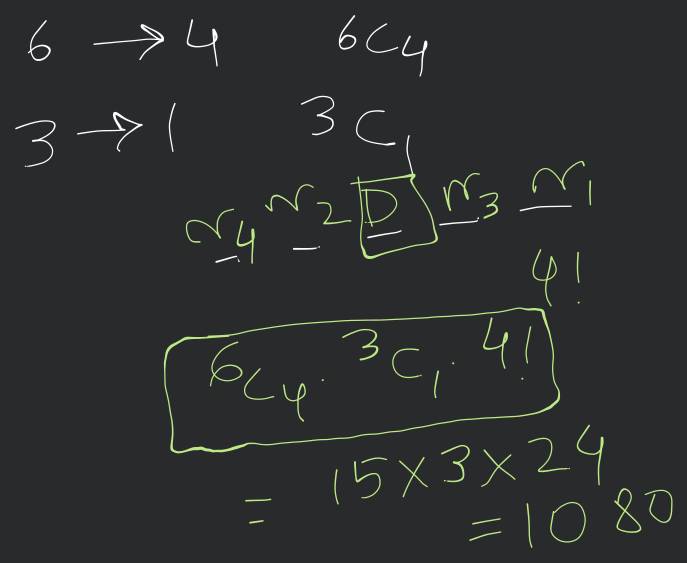 6 → 4 6C4
3 → 1 3C1
N4 N2 D N3 N1
4!
6C4 · 3C1 · 4!
= 15 × 3 × 24
= 1080